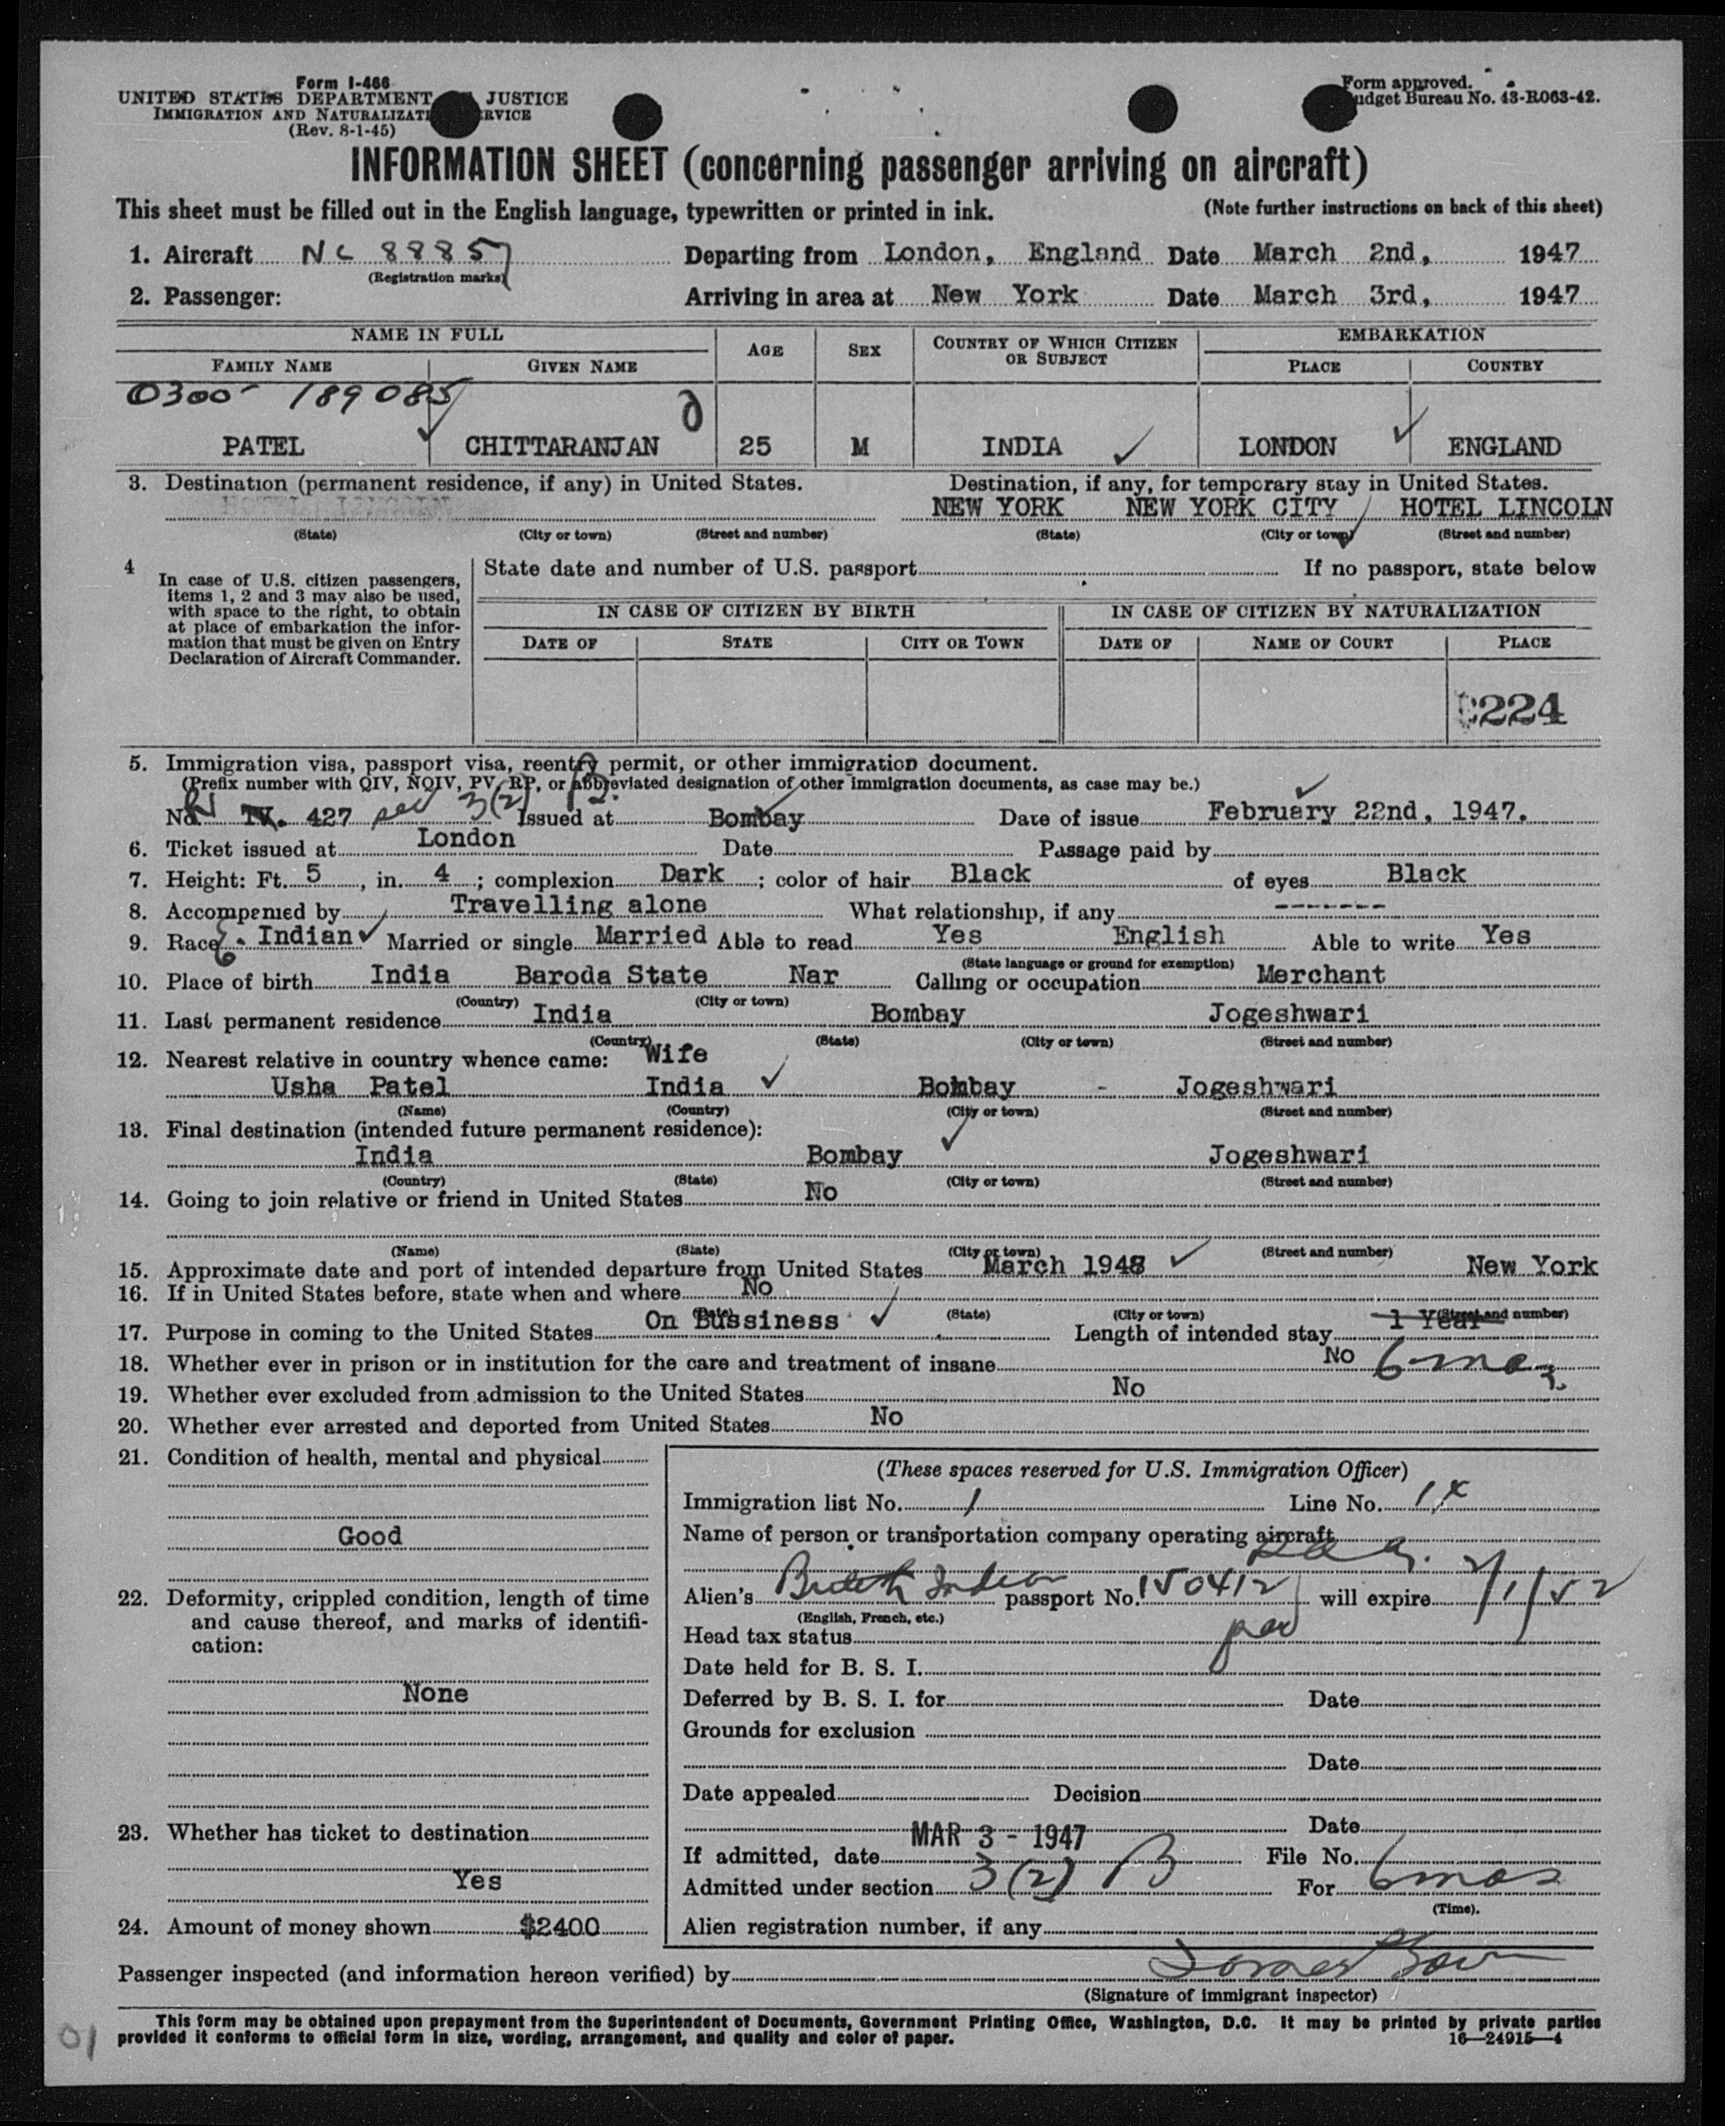 Form I-466
UNITED STATES DEPARTMENT JUSTICE
IMMIGRATION AND NATURALIZATI RVICE
(Rev. 8-1-45)
Form approved.
udget Bureau No. 43-R063-42.
INFORMATION SHEET (concerning passenger arriving on aircraft)
This sheet must be filled out in the English language, typewritten or printed in ink. (Note further instructions on back of this sheet)
1. Aircraft NC 88857 Departing from London, England Date March 2nd, 1947
(Registration marks)
2. Passenger: Arriving in area at New York Date March 3rd, 1947
NAME IN FULL AGE SEX COUNTRY OF WHICH CITIZEN OR SUBJECT EMBARKATION
FAMILY NAME GIVEN NAME PLACE COUNTRY
0300- 189085
PATEL CHITTARANJAN 25 M INDIA LONDON ENGLAND
3. Destination (permanent residence, if any) in United States. Destination, if any, for temporary stay in United States.
NEW YORK NEW YORK CITY HOTEL LINCOLN
(State) (City or town) (Street and number) (State) (City or town) (Street and number)
4 In case of U.S. citizen passengers, items 1, 2 and 3 may also be used, with space to the right, to obtain at place of embarkation the information that must be given on Entry Declaration of Aircraft Commander.
State date and number of U.S. passport If no passport, state below
IN CASE OF CITIZEN BY BIRTH IN CASE OF CITIZEN BY NATURALIZATION
DATE OF STATE CITY OR TOWN DATE OF NAME OF COURT PLACE
224
5. Immigration visa, passport visa, reentry permit, or other immigration document.
(Prefix number with QIV, NQIV, PV, RP, or abbreviated designation of other immigration documents, as case may be.)
No. 427 sec 3(2) Issued at Bombay Date of issue February 22nd, 1947.
6. Ticket issued at London Date Passage paid by
7. Height: Ft. 5, in. 4; complexion Dark; color of hair Black of eyes Black
8. Accompanied by Travelling alone What relationship, if any -------
9. Race Indian Married or single Married Able to read Yes English Able to write Yes
(State language or ground for exemption)
10. Place of birth India Baroda State Nar Calling or occupation Merchant
(Country) (City or town)
11. Last permanent residence India Bombay Jogeshwari
(Country) (State) (City or town) (Street and number)
12. Nearest relative in country whence came: Wife
Usha Patel India Bombay - Jogeshwari
(Name) (Country) (City or town) (Street and number)
13. Final destination (intended future permanent residence):
India Bombay Jogeshwari
(Country) (State) (City or town) (Street and number)
14. Going to join relative or friend in United States No
(Name) (State) (City or town) (Street and number)
15. Approximate date and port of intended departure from United States March 1948 New York
16. If in United States before, state when and where No
(Date) (State) (City or town) (Street and number)
17. Purpose in coming to the United States On Bussiness Length of intended stay 1 Year
18. Whether ever in prison or in institution for the care and treatment of insane No 6 mos
19. Whether ever excluded from admission to the United States No
20. Whether ever arrested and deported from United States No
21. Condition of health, mental and physical
Good
22. Deformity, crippled condition, length of time and cause thereof, and marks of identification:
None
23. Whether has ticket to destination
Yes
24. Amount of money shown $2400
(These spaces reserved for U.S. Immigration Officer)
Immigration list No. 1 Line No.
Name of person or transportation company operating aircraft
Alien's British Indian passport No. 150412 will expire 2/1/52
(English, French, etc.)
Head tax status
Date held for B. S. I.
Deferred by B. S. I. for Date
Grounds for exclusion
Date
Date appealed Decision
Date
If admitted, date MAR 3 - 1947 File No.
Admitted under section 3(2) B For 6 mos
(Time).
Alien registration number, if any
Passenger inspected (and information hereon verified) by
(Signature of immigrant inspector)
This form may be obtained upon prepayment from the Superintendent of Documents, Government Printing Office, Washington, D.C. It may be printed by private parties
provided it conforms to official form in size, wording, arrangement, and quality and color of paper. 16—24915-4